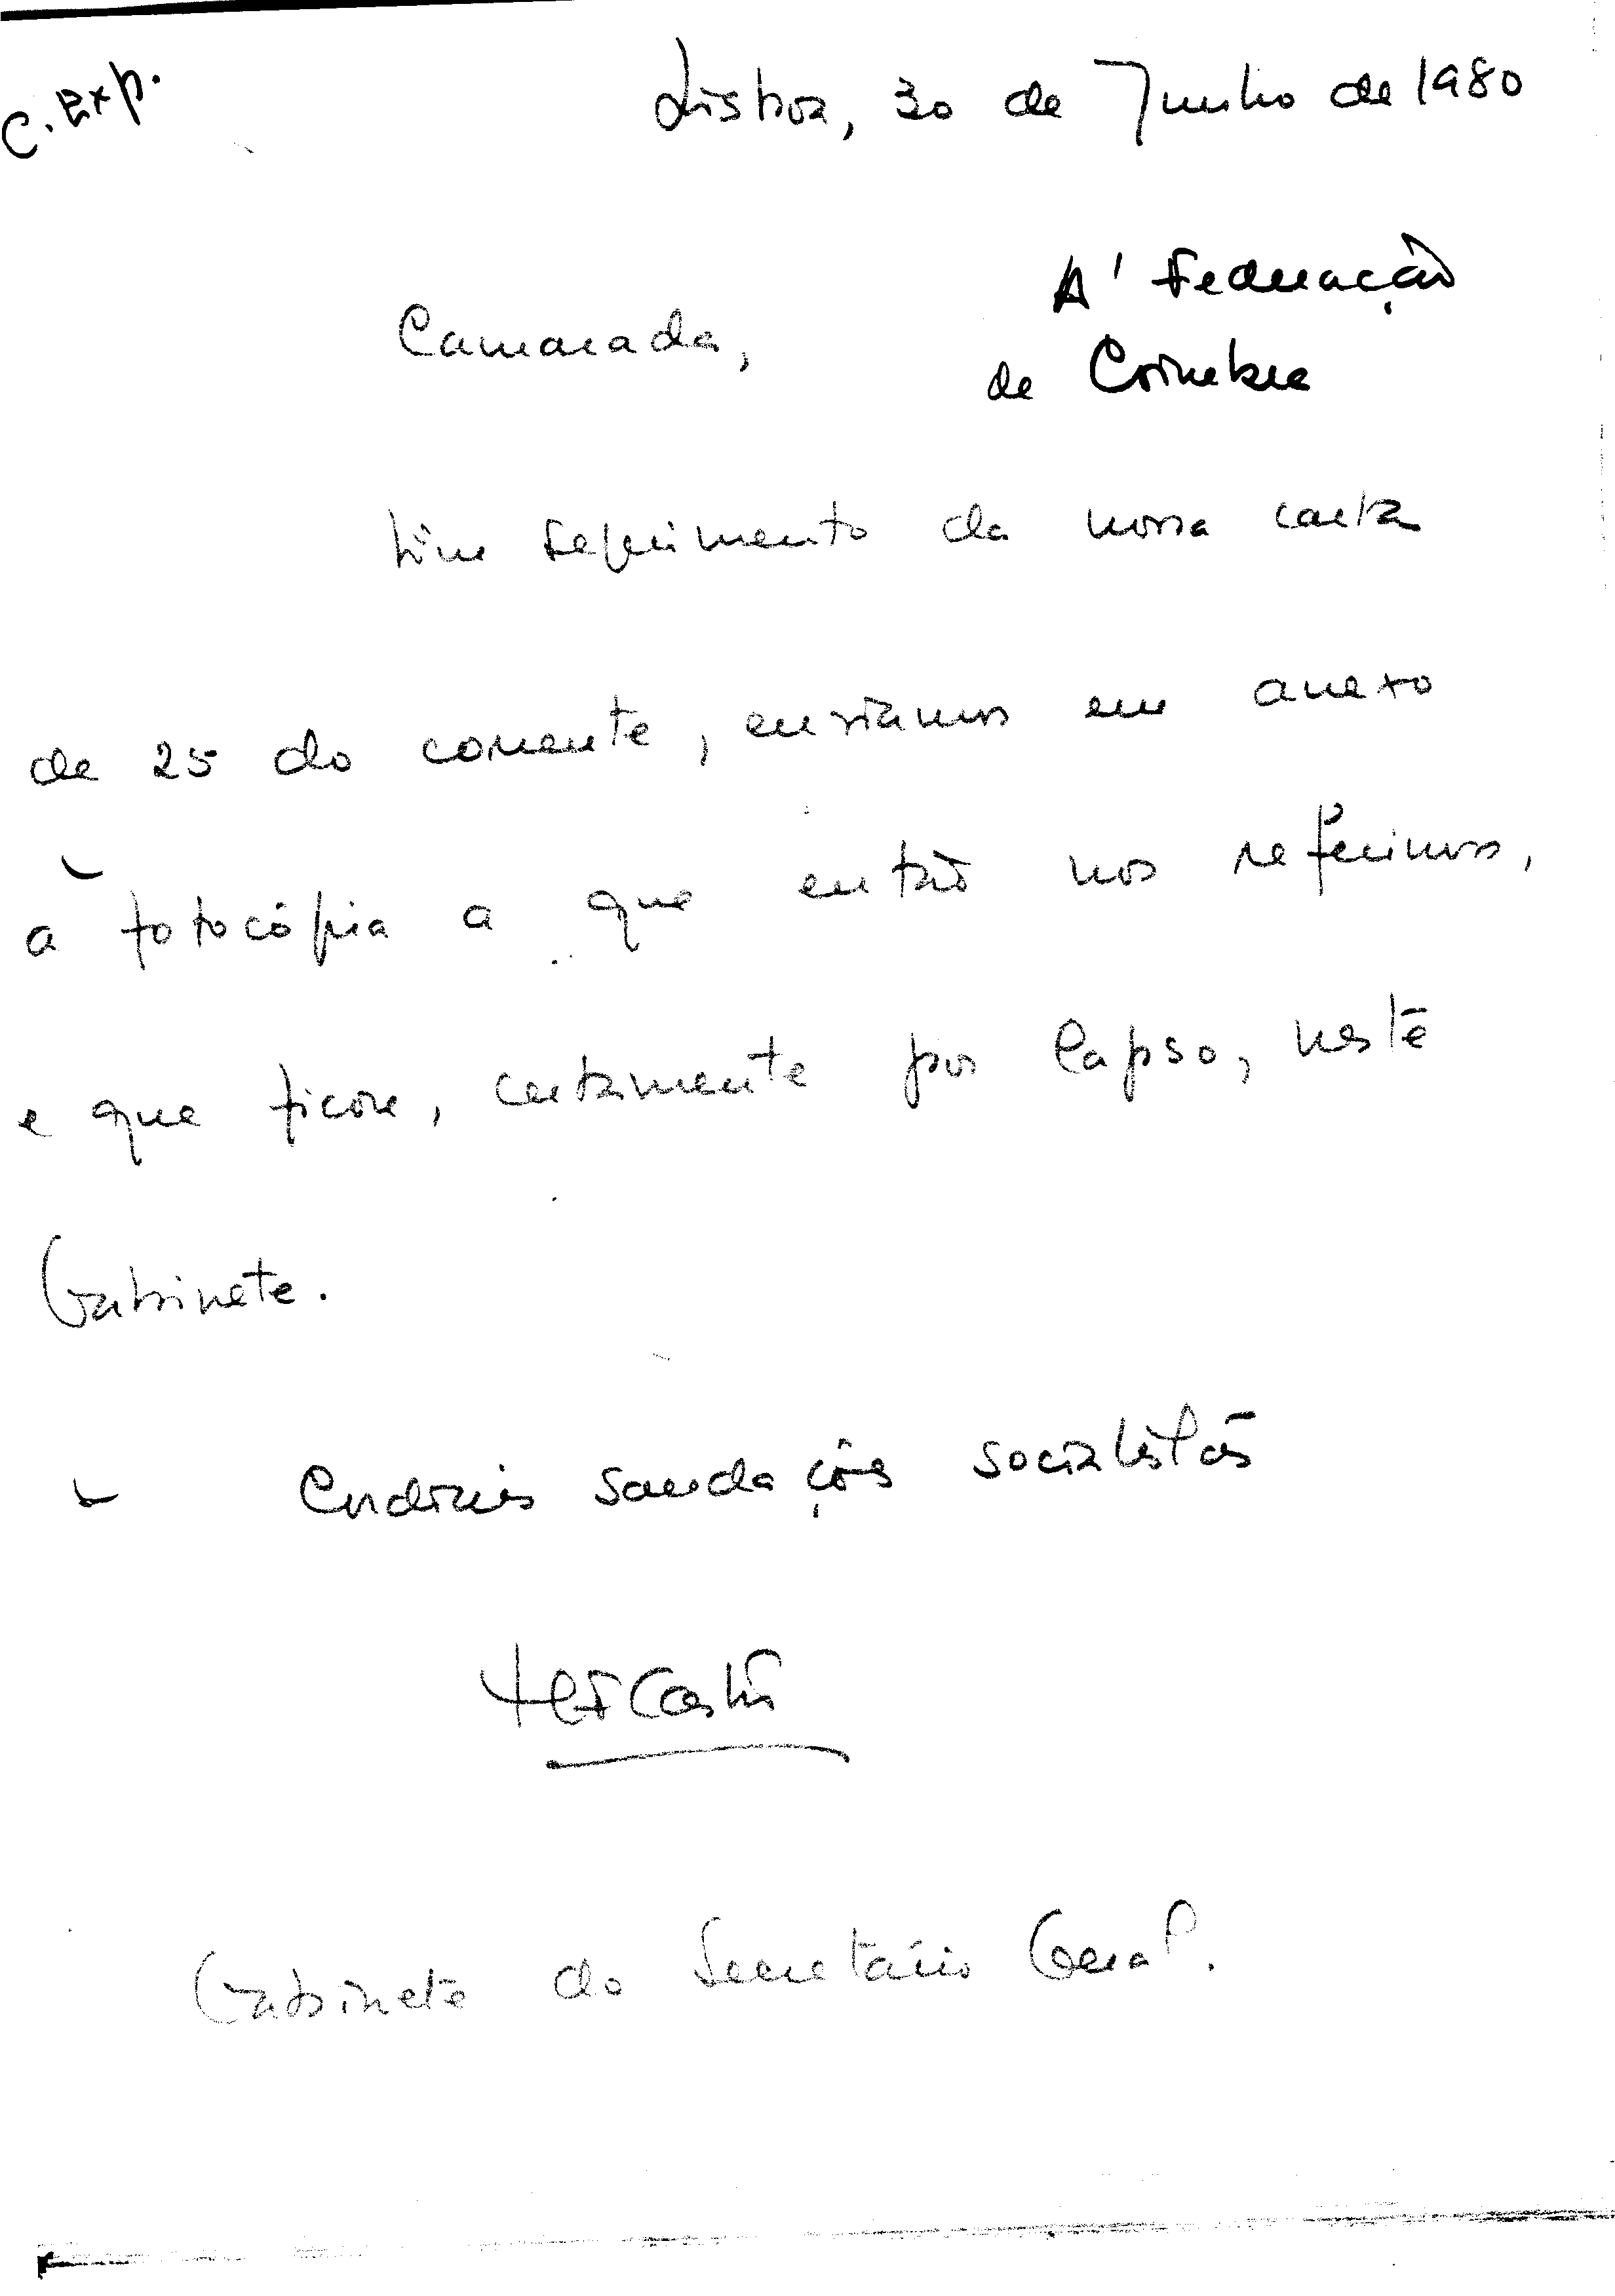 C. Exp.
Lisboa, 30 de Junho de 1980
A' Federação
de Coimbra
Camarada,
Em seguimento da nossa carta
de 25 do corrente, enviamos em anexo
a fotocópia a que então nos referimos,
e que ficou, certamente por lapso, neste
Gabinete.
Cordiais saudações socialistas
Gabinete do Secretário Geral.